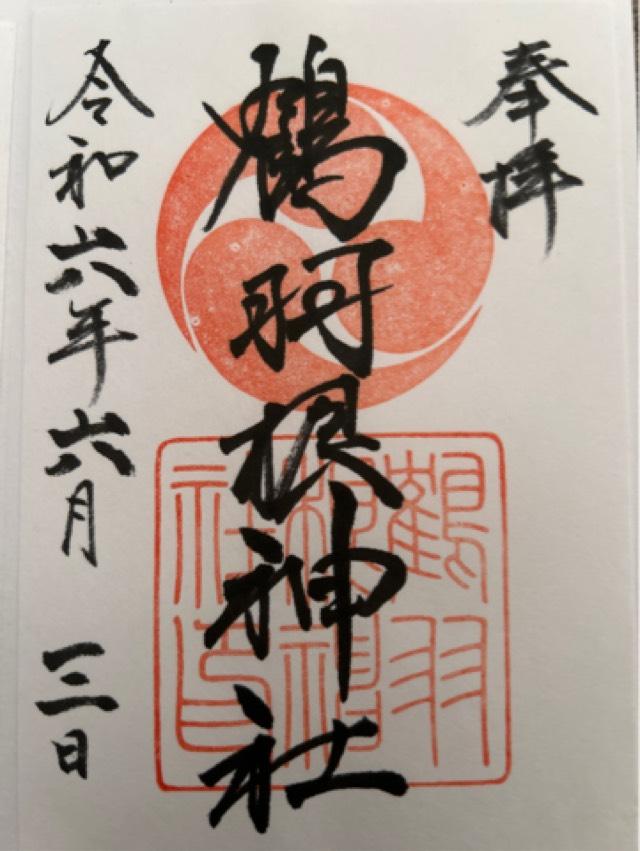 奉拝
鶴羽根神社
鶴羽
根神
社印
令和六年六月 三日